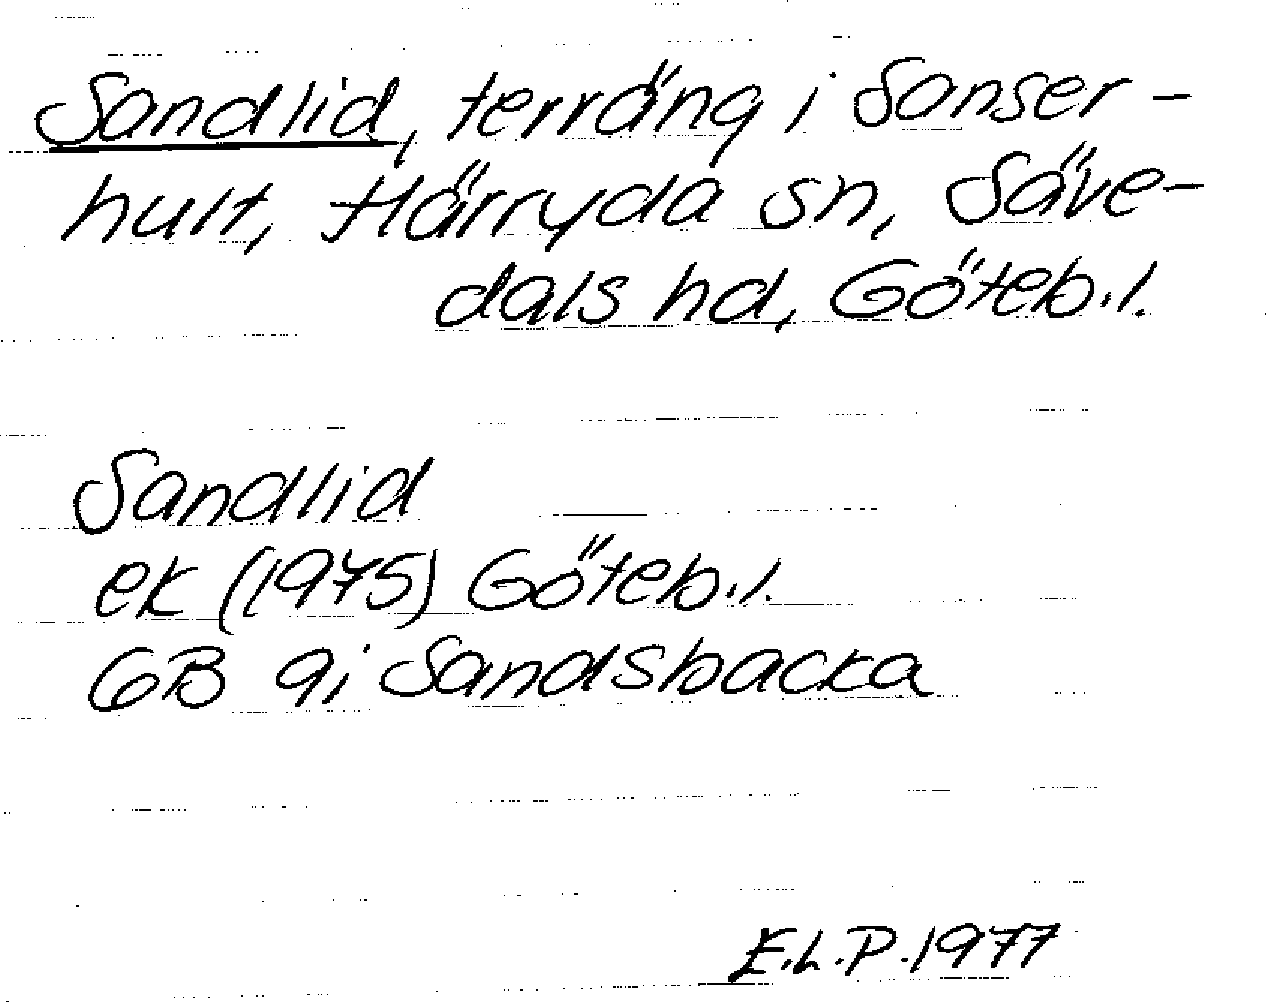 Sandlid, terräng i Sanser-
hult, Härryda sn, Säve-
dals hd, Göteb.l.
Sandlid
ek (1975) Göteb.l.
6B 9i Sandsbacka
E.L.P. 1977